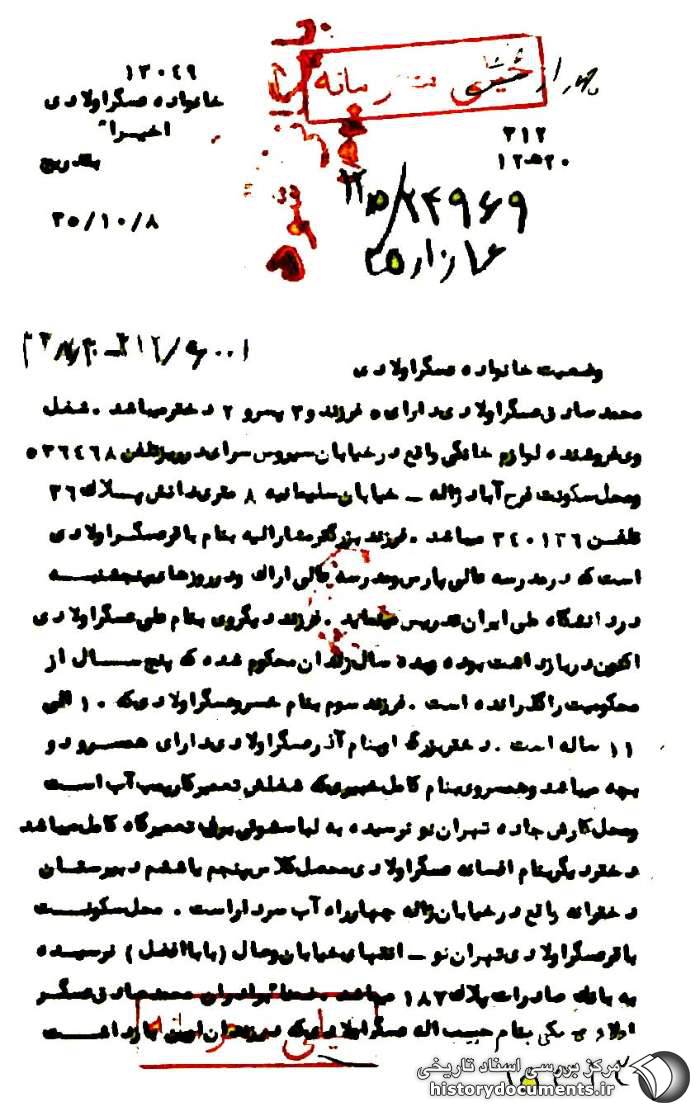 خیلی محرمانه
۱۳۰۴۹
خانواده عسگراولادی
اخیراً
بتدریج
۳۵/۱۰/۸
۳۱۲
۲۰ه۱۲
۲۴۹۶۹
وضعیت خانواده عسگراولادی
محمد صادق عسگراولادی دارای ۵ فرزند و ۳ پسر و ۲ دختر میباشد . شغل
وی فروشنده لوازم خانگی واقع در خیابان سیروس سرای تلفن ۵۳۶۴۶۸
ومحل سکونت فرح آباد ژاله - خیابان سلیمانیه ۸ متری دانش پلاک ۳۶
تلفن ۳۴۰۱۳۶ میباشد . فرزند بزرگتر مشارالیه بنام باقر عسگراولادی
است که در مدرسه عالی پارس ومدرسه عالی اراک ودر روزهای پنجشنبه
در دانشگاه ملی ایران تدریس مینماید . فرزند دیگروی بنام علی عسگراولادی
اکنون در بازداشت بوده وبده سال زندان محکوم شده که پنج سال از
محکومیت را گذرانده است . فرزند سوم بنام خسرو عسگراولادی که ۱۰ الی
۱۱ ساله است . دختر بزرگ او بنام آذر عسگراولادی دارای همسر و دو
بچه میباشد وهمسروی بنام کامل که شغلش تعمیرکار پمپ آب است
ومحل کارش جاده تهران نو نرسیده به لباسشوئی برق تعمیرگاه کامل میباشد
دختر دیگر بنام افسانه عسگراولادی محصل کلاس پنجم یا ششم دبیرستان
دخترانه واقع در خیابان ژاله چهارراه آب سردار است . محل سکونت
باقر عسگراولادی تهران نو - انتهای خیابان وصال (بابا افضل) نرسیده
به بانک صادرات پلاک ۱۸۷ میباشد ضمناً برادران محمد صادق عسگر
اولادی یکی بنام حبیب اله عسگراولادی که در زندان اوین بازداشت
خیلی محرمانه
مرکز بررسی اسناد تاریخی
historydocuments.ir